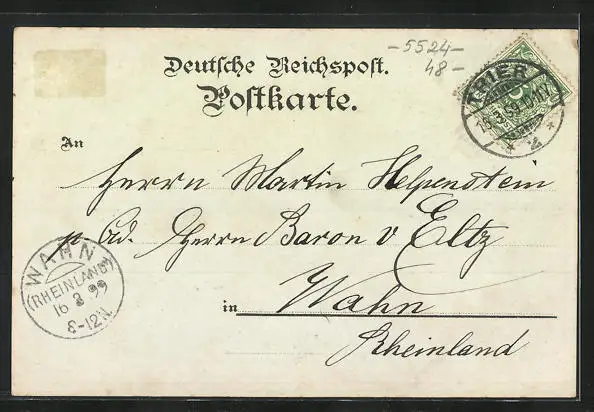 -5524-
48-
Deutsche Reichspost.
Postkarte.
TRIER
* 2 *
An
Herrn Martin Helpenstein
p. Ad. Herrn Baron v Eltz
WAHN
(RHEINLAND)
16 3 99
8-12N.
in Wahn
Rheinland